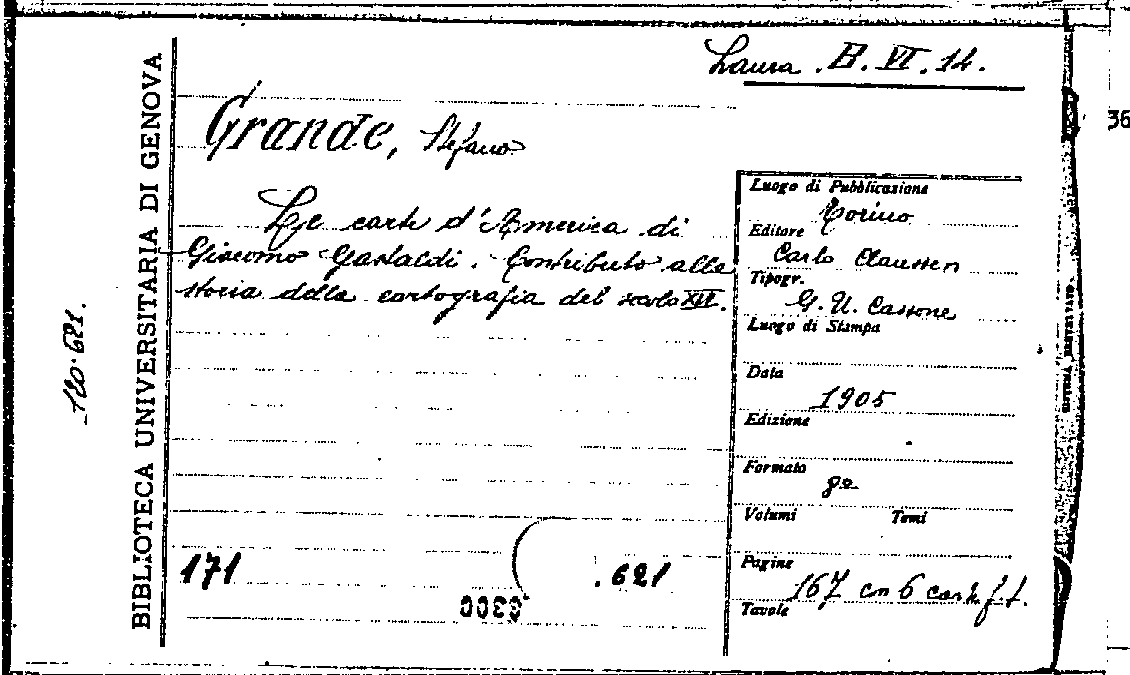 Laura . B. VI. 14.
Grande, Stefano
Le carte d'America di
Giacomo Gastaldi. Contributo alla
storia della cartografia del secolo XVI.
BIBLIOTECA UNIVERSITARIA DI GENOVA
120.621.
Luogo di Pubblicazione
Torino
Editore
Carlo Clausen
Tipogr.
G. U. Cassone
Luogo di Stampa
Data
1905
Edizione
Formato
8º
Volumi Tomi
Pagine
167 con 6 carte f.t.
Tavole
171 .621
36